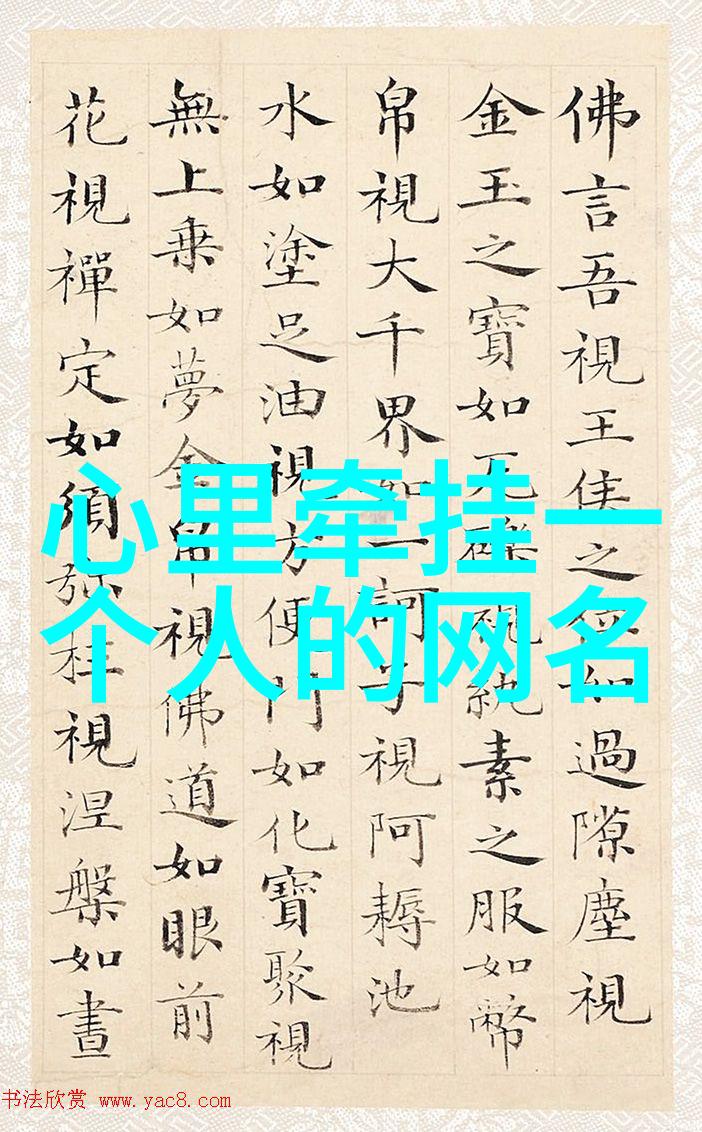 佛言吾視王侯之位如過隙塵視
金玉之寶如瓦礫視紈素之服如幣
帛視大千界如一訶子視阿耨池
水如塗足油視方便門如化寶聚視
無上乗如夢金帛視佛道如眼前
花視禪定如須弥柱視涅槃如晝
心里牵挂一
个人的网名
书法欣赏 www.yac8.com